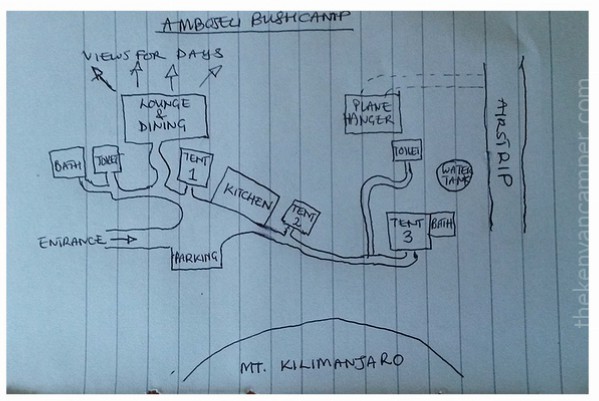 AMBOSELI BUSHCAMP
VIEWS FOR DAYS
LOUNGE
&
DINING
PLANE
HANGER
AIRSTRIP
BATH
TOILET
TENT
1
KITCHEN
TENT
2
TOILET
WATER
TANK
TENT
3
BATH
ENTRANCE
PARKING
MT. KILIMANJARO
thekenyancamper.com